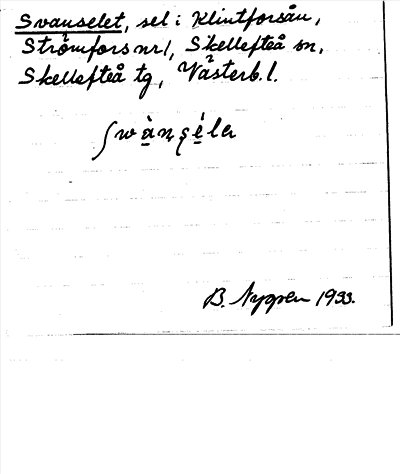 Svanselet, sel i Klintforsån,
Strömfors nr 1, Skellefteå sn,
Skellefteå tg, Västerb. l.
B. Nygren 1933.